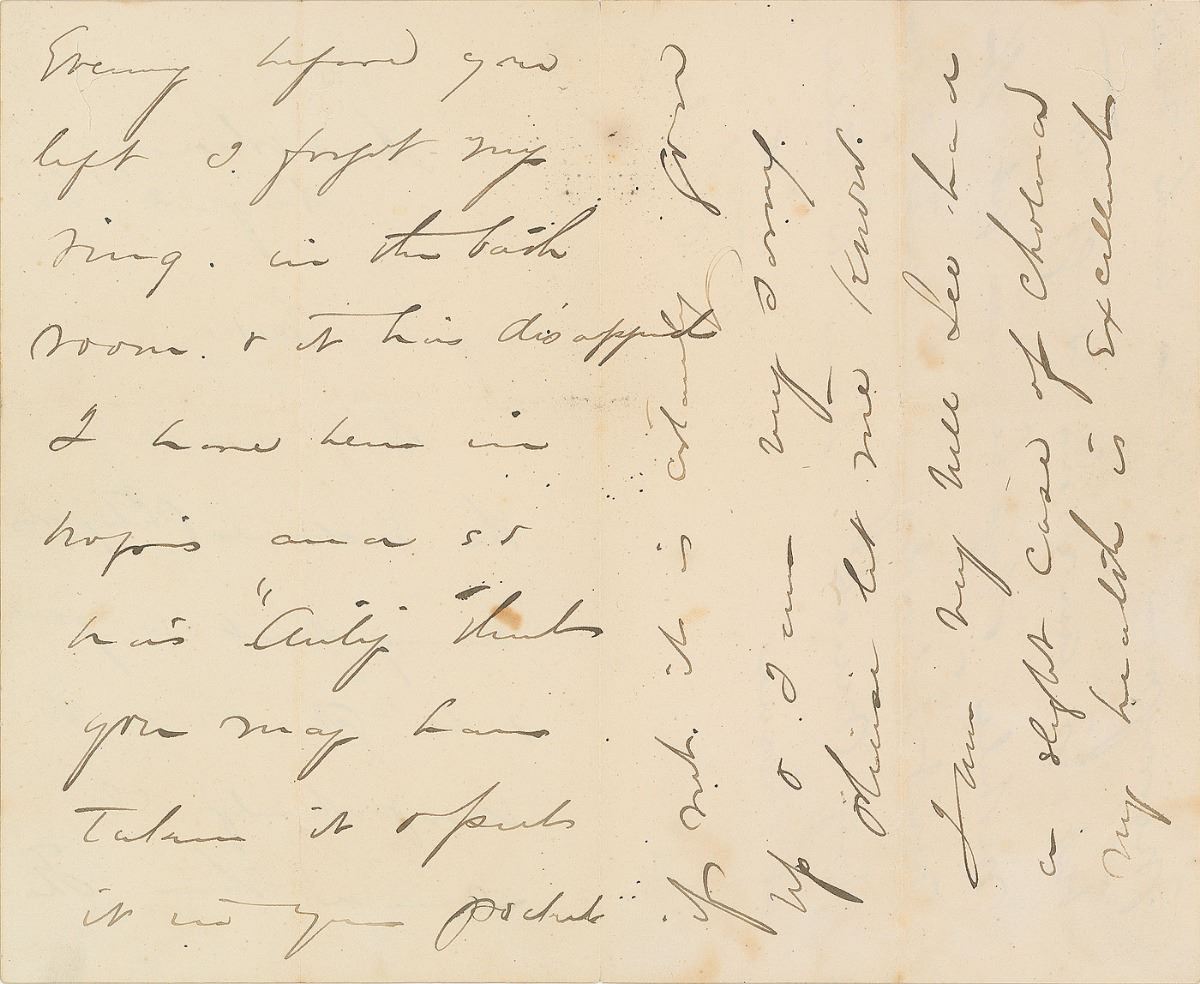 Evening before you
left I forgot my
ring. in the bath
room. & it has
I have been in
hopes and so
has
you may have
Taken it & put
it in your pocket
if not. it is certainly gone
up & I am very sorry.
let me know.
I am very well had
a slight case of Cholera
My health is Excellent